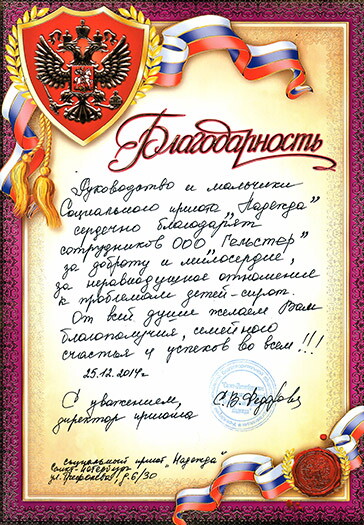 Благодарность
Руководство и мальчики
Социального приюта „Надежда”
сердечно благодарят
сотрудников ООО „Гельстер”
за доброту и милосердие,
за неравнодушное отношение
к проблемам детей-сирот.
От всей души желаем Вам
благополучия, семейного
счастья и успехов во всем!!!
25.12.2014г
С уважением,
директор приюта
социальный приют „Надежда”
Санкт-Петербург